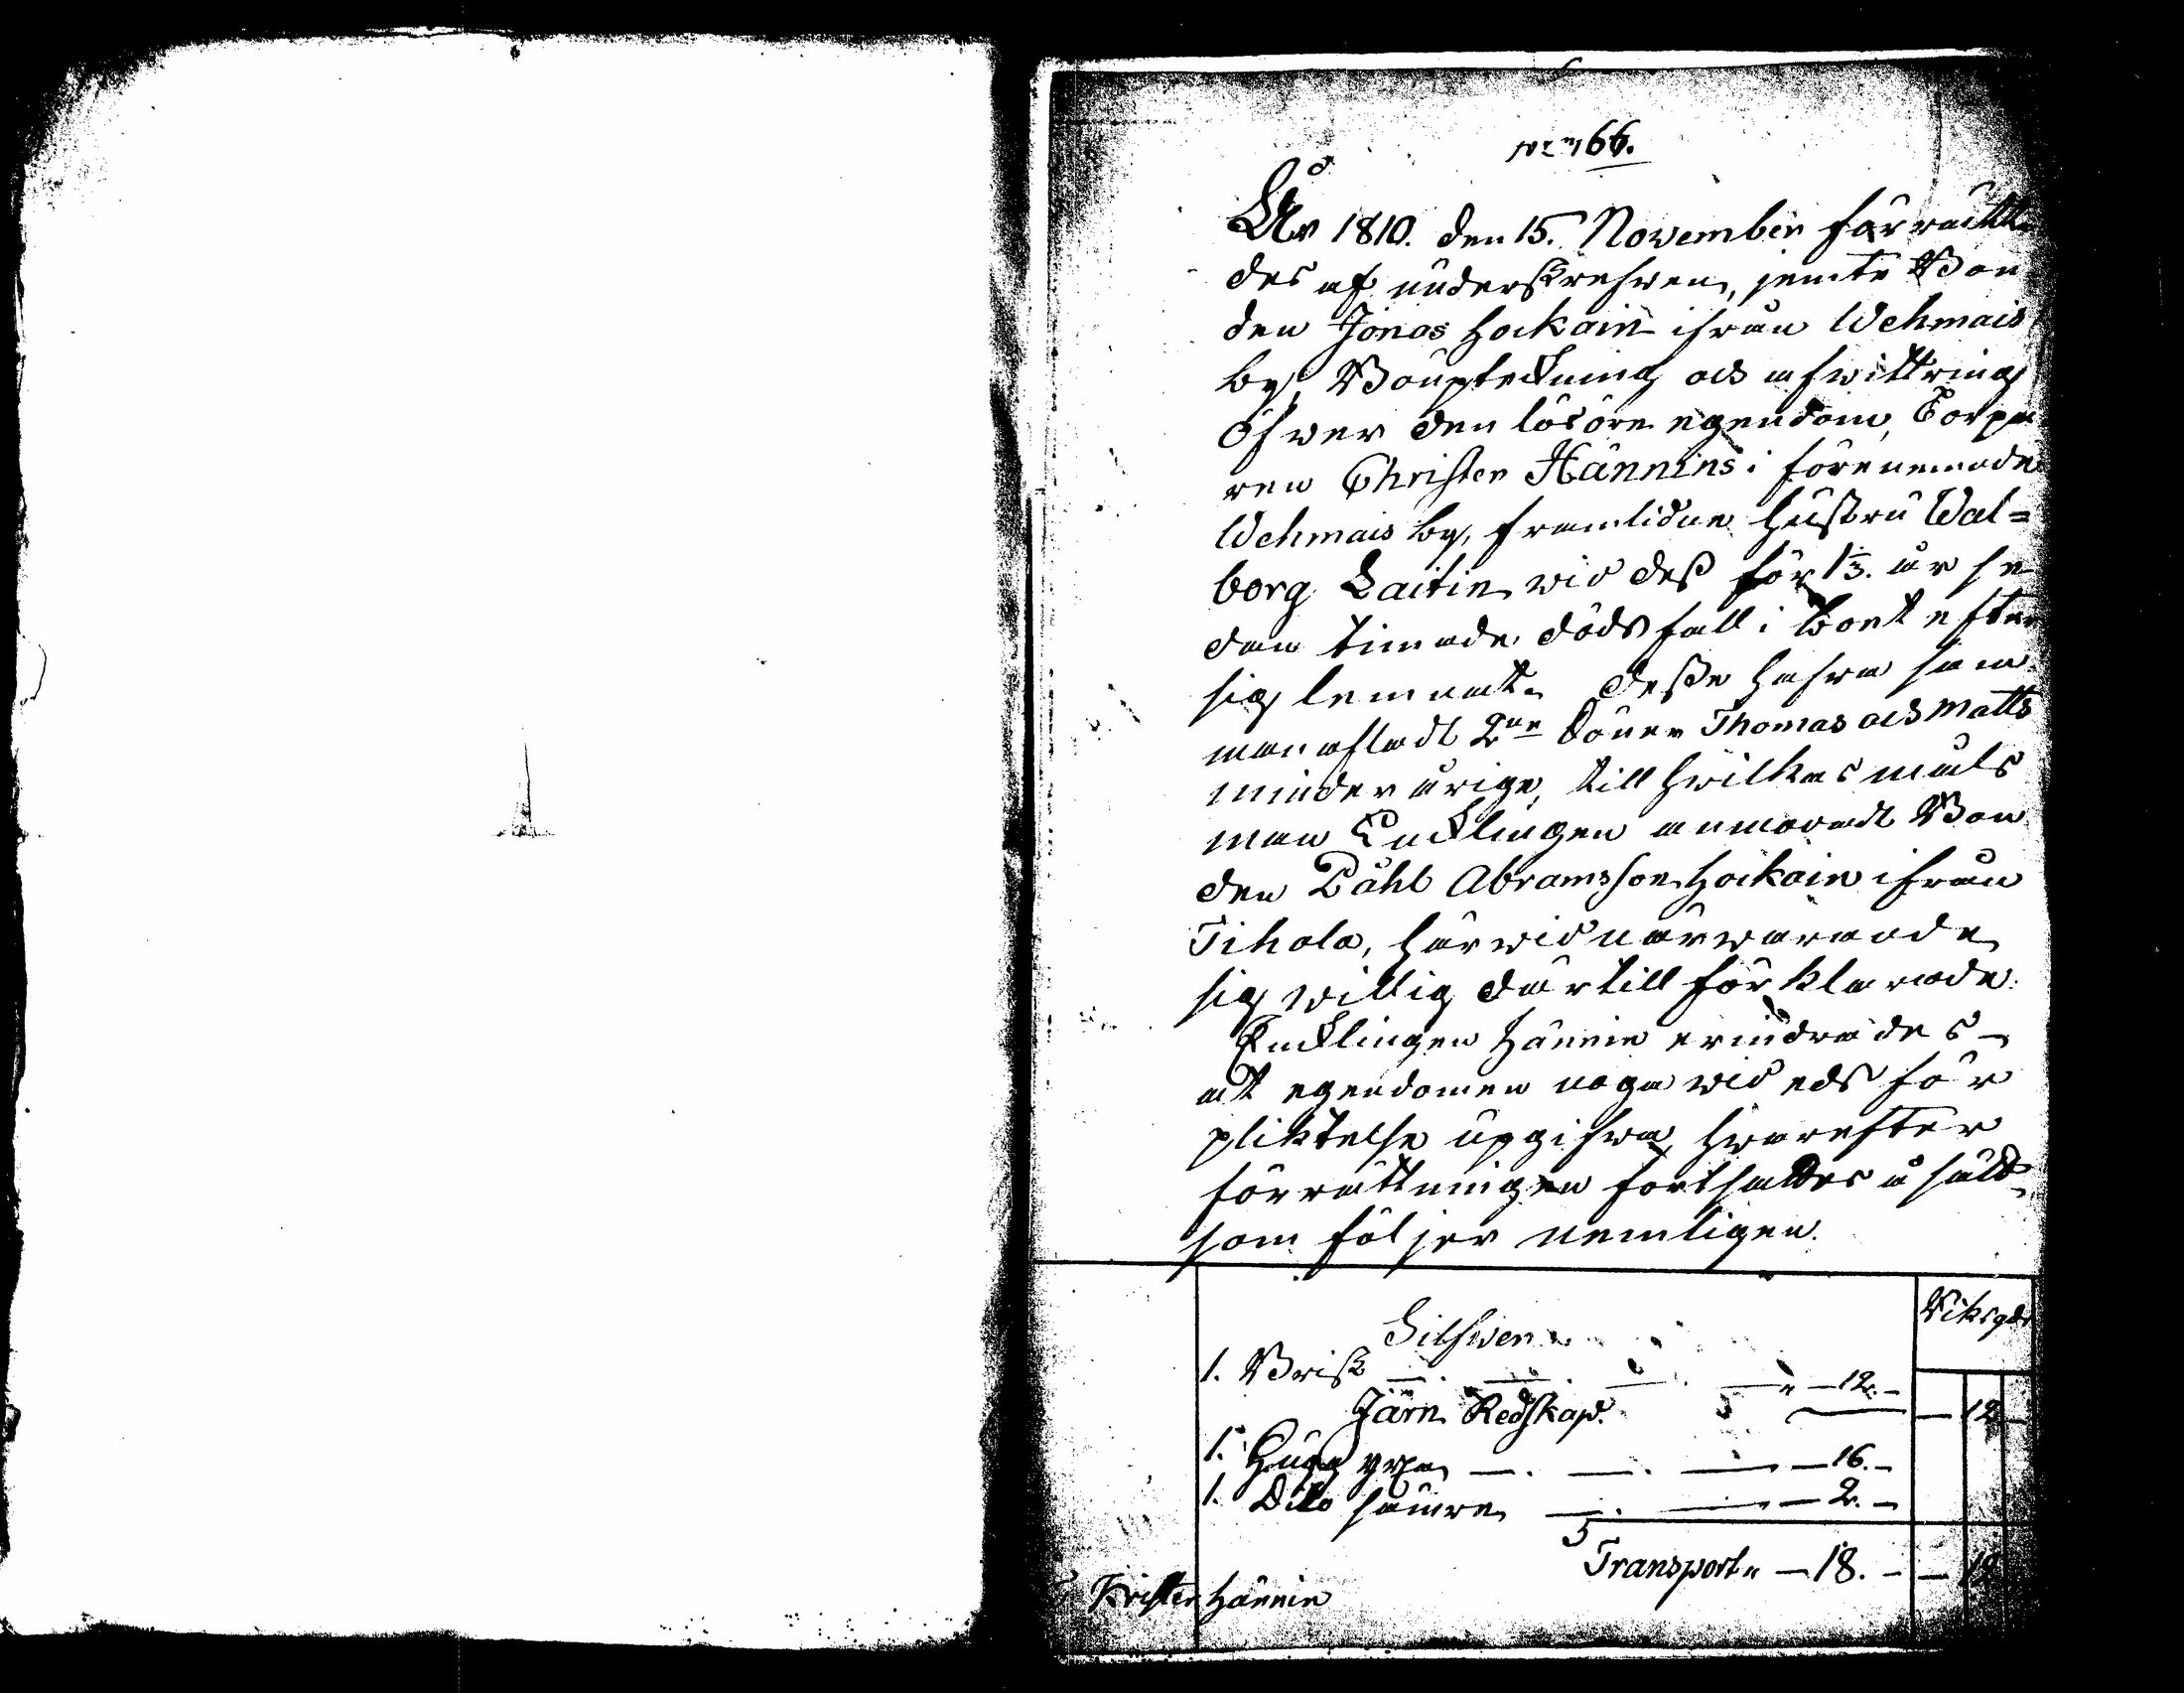 N:o 66.
År 1810. den 15. November förrätta-
des af underskrefwen, jemte Bon
den Jonas Hockain ifrån Wehmais
by, Boupteckning och afwittring
öfwer den lösöre egendom, Torpa
ren Christer Hännins i förenemnde
Wehmais by, framlidne hustru Wal=
borg Laitin wid dess för 1 1/3. år se
dan timade dödsfall i bort efter
sig lemnat. Desse hafwa sam
manafladt 2ne Söner Thomas och Matts
minderårige, till hwilkas måls
man Encklingen anmodadt Bon
den Påhl Abramsson Hockain ifrån
Tihola, härwid närwarande
sig willig därtill förklarade.
Encklingen Hännin erindrades
at egendomen noga wid eds för
pliktelse upgifwa, hwarefter
förrättningen fortsattes å sätt
som följer nemligen.
Riksgds
Silfwer
1. Brisk — 12. —
Järn Redskap. — 12 —
1. Hugg yxa — 16. —
1. Dito sämre — 2. —
Transport — 18. — — 12
Krister Hännin